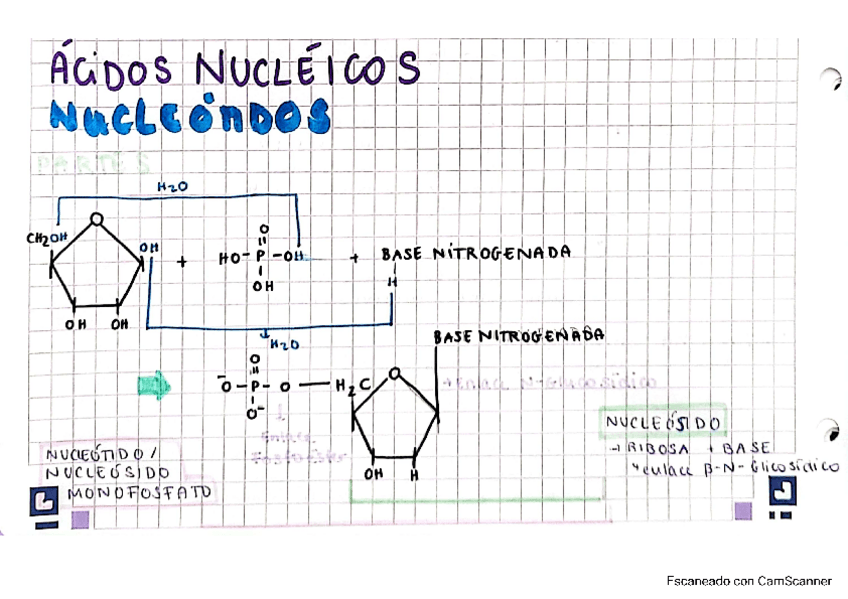 ÁCIDOS NUCLÉICOS
NUCLEÓNDOS
PARTES
H₂O
O
CH₂OH
OH
OH OH
+
O
HO-P-OH
OH
+
BASE NITROGENADA
H
H₂O
BASE NITROGENADA
O
⁻O-P-O
O⁻
H₂C
O
OH H
→ Enlace N-Glucosídico
Enlace
Fosfoéster
NUCLEÓSIDO
→ RIBOSA + BASE
enlace β-N-Glicosídico
NUCLEÓTIDO/
NUCLEÓSIDO
MONOFOSFATO
Escaneado con CamScanner